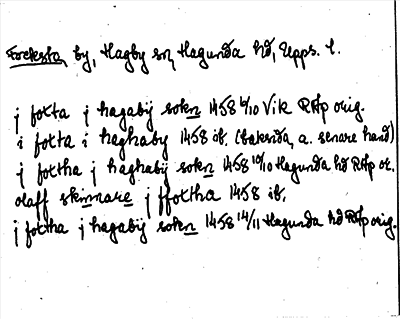 Focksta, by, Hagby sn, Hagunda hd, Upps. l.
j fotta j hagabij sokn 1458 6/10 Vik RAp orig.
i fotta i haghaby 1458 ib. (baksida, a. senare hand)
j fottha j haghabij sokn 1458 10/10 Hagunda hd RAp or.
olaff skinnare j ffottha 1458 ib.
j fottha j hagabij sokn 1458 14/11 Hagunda hd RAp orig.